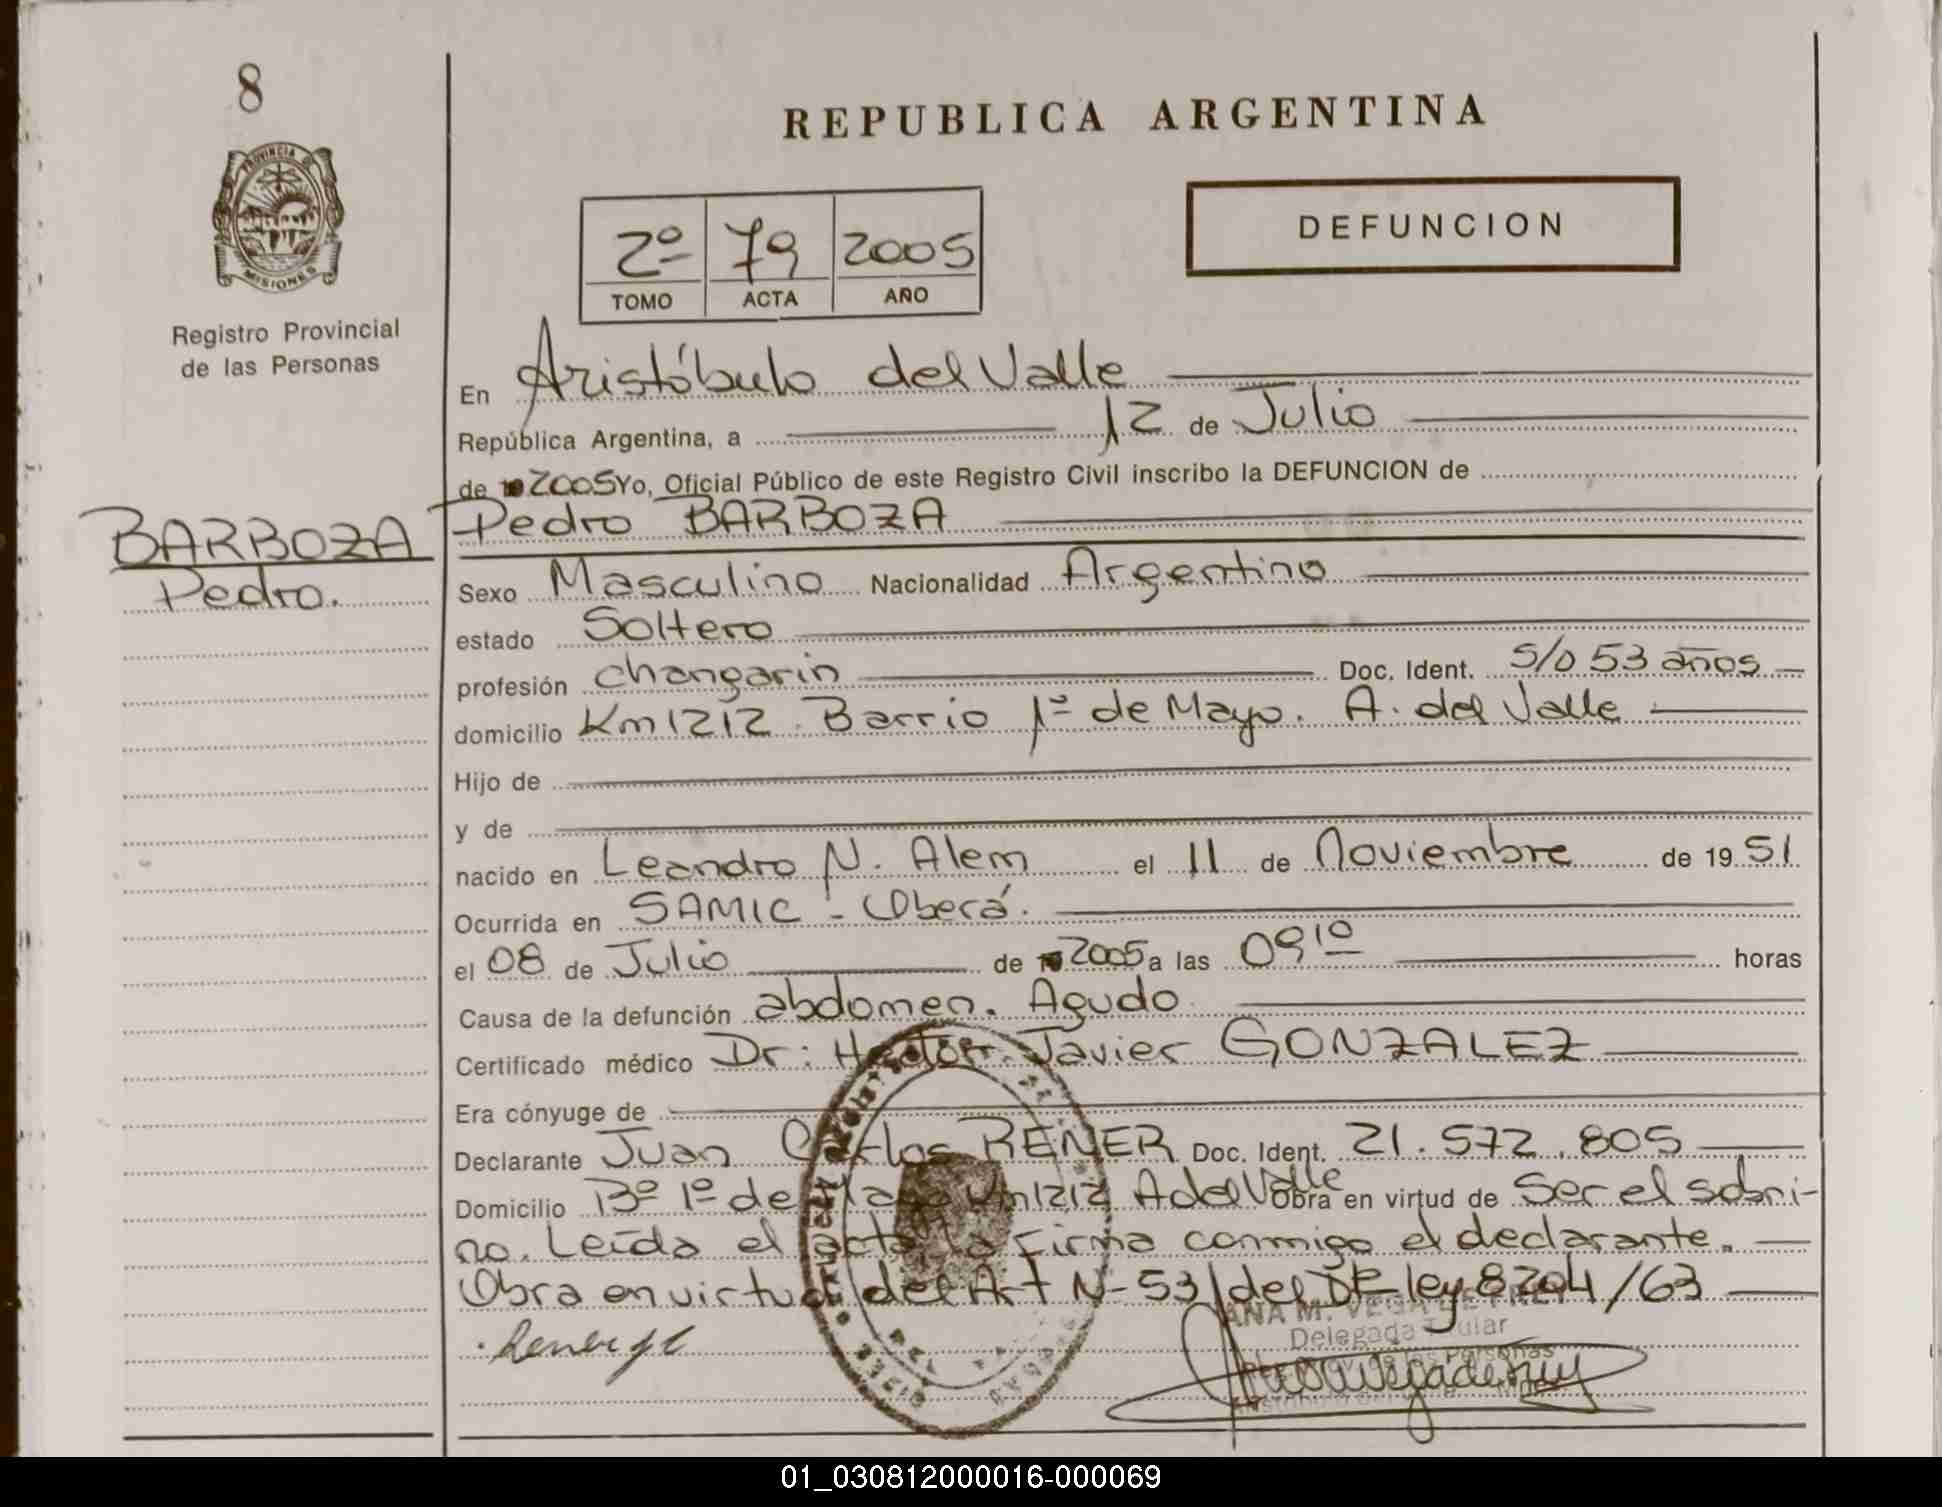 8
REPUBLICA ARGENTINA
PROVINCIA DE
MISIONES
DEFUNCION
2º 79 2005
TOMO ACTA AÑO
Registro Provincial
de las Personas
En Aristóbulo del Valle
República Argentina, a 12 de Julio
de 2005 Yo, Oficial Público de este Registro Civil inscribo la DEFUNCION de
BARBOZA
Pedro.
Pedro BARBOZA
Sexo Masculino Nacionalidad Argentino
estado Soltero
profesión changarin Doc. Ident. S/D 53 años
domicilio Km 1212 Barrio 1º de Mayo. A. del Valle
Hijo de
y de
nacido en Leandro N. Alem el 11 de Noviembre de 1951
Ocurrida en SAMIC - Oberá.
el 08 de Julio de 2005 a las 09 10 horas
Causa de la defunción abdomen. Agudo
Certificado médico Dr: Hector Javier GONZALEZ
Era cónyuge de
Declarante Juan Carlos RENER Doc. Ident. 21.572.805
Domicilio Bº 1º de Mayo Km 1212 A del Valle Obra en virtud de Ser el sobri-
no. Leída el acta, la firma conmigo el declarante.
Obra en virtud del Art Nº 53 del ley 8204/63
ANA M. VEGA DE
Delegada Titular
de las Personas
01_030812000016-000069